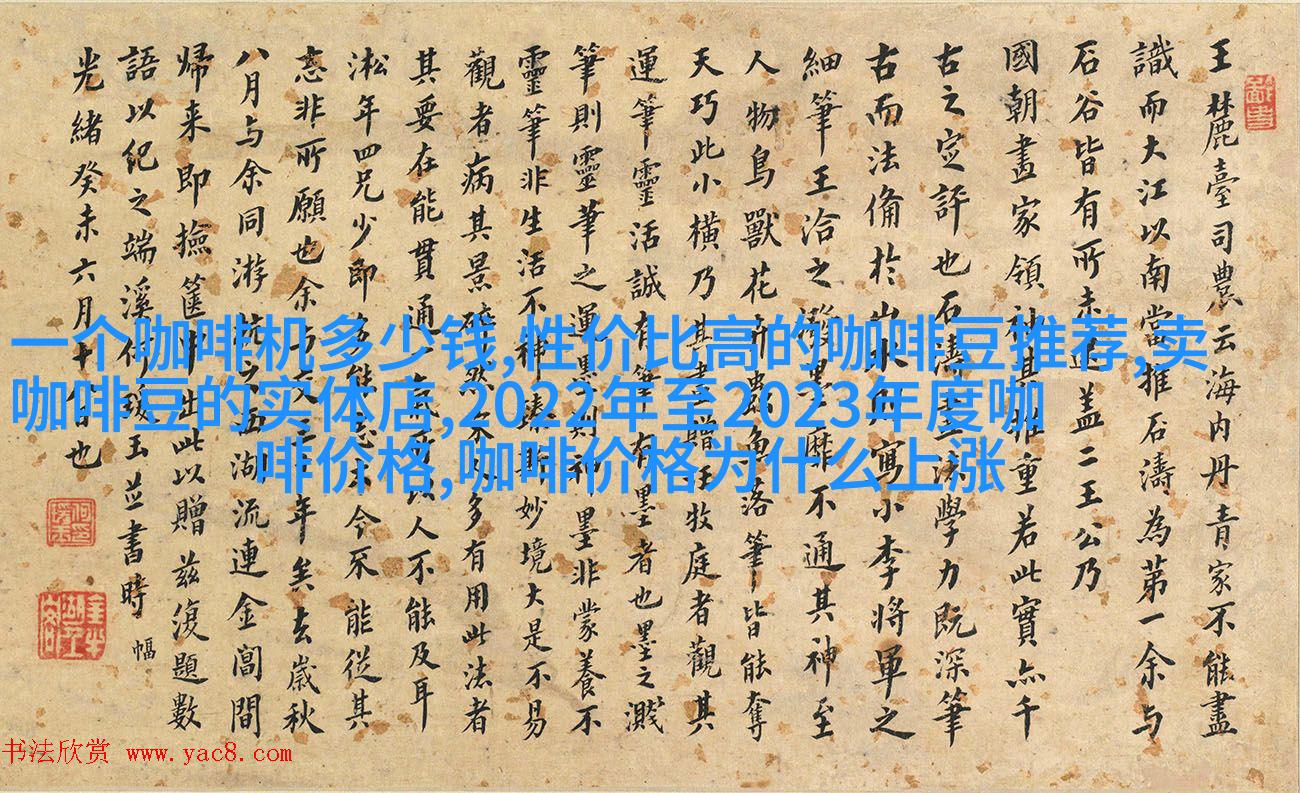 一个咖啡机多少钱,性价比高的咖啡豆推荐,卖
咖啡豆的实体店,2022年至2023年度咖
啡价格,咖啡价格为什么上涨
王麓臺司農云海内丹青家不能盡
識而大江以南當推石濤為第一余与
石谷皆有所未逮蓋二王公乃
國朝畫家領袖其推重若此實亦千
古之定評也石濤畫法學力既深筆
古而法備於山水則寫小李將軍之
細筆王洽之潑墨靡不通其神至
人物鳥獸花卉蟲魚落筆皆能奪
天巧此小橫乃其畫贈汪牧庭者觀其
運筆靈活誠有筆有墨者也墨之濺
筆則靈筆之運墨則神墨非蒙養不
靈筆非生活不神湊斯妙境大是不易
觀者病其景碎然多有用此法者
其要在能貫通一氣故人不能及耳
淞年四兄少即能今不能從其
忘非所願也余与之交三年矣去歲秋
八月与余同游杭之西湖流連金閶間
歸来即撿篋中出此以贈茲復題數
語以紀之端溪何瑗玉並書時
幅
光緒癸未六月十八日也
书法欣赏 www.yac8.com